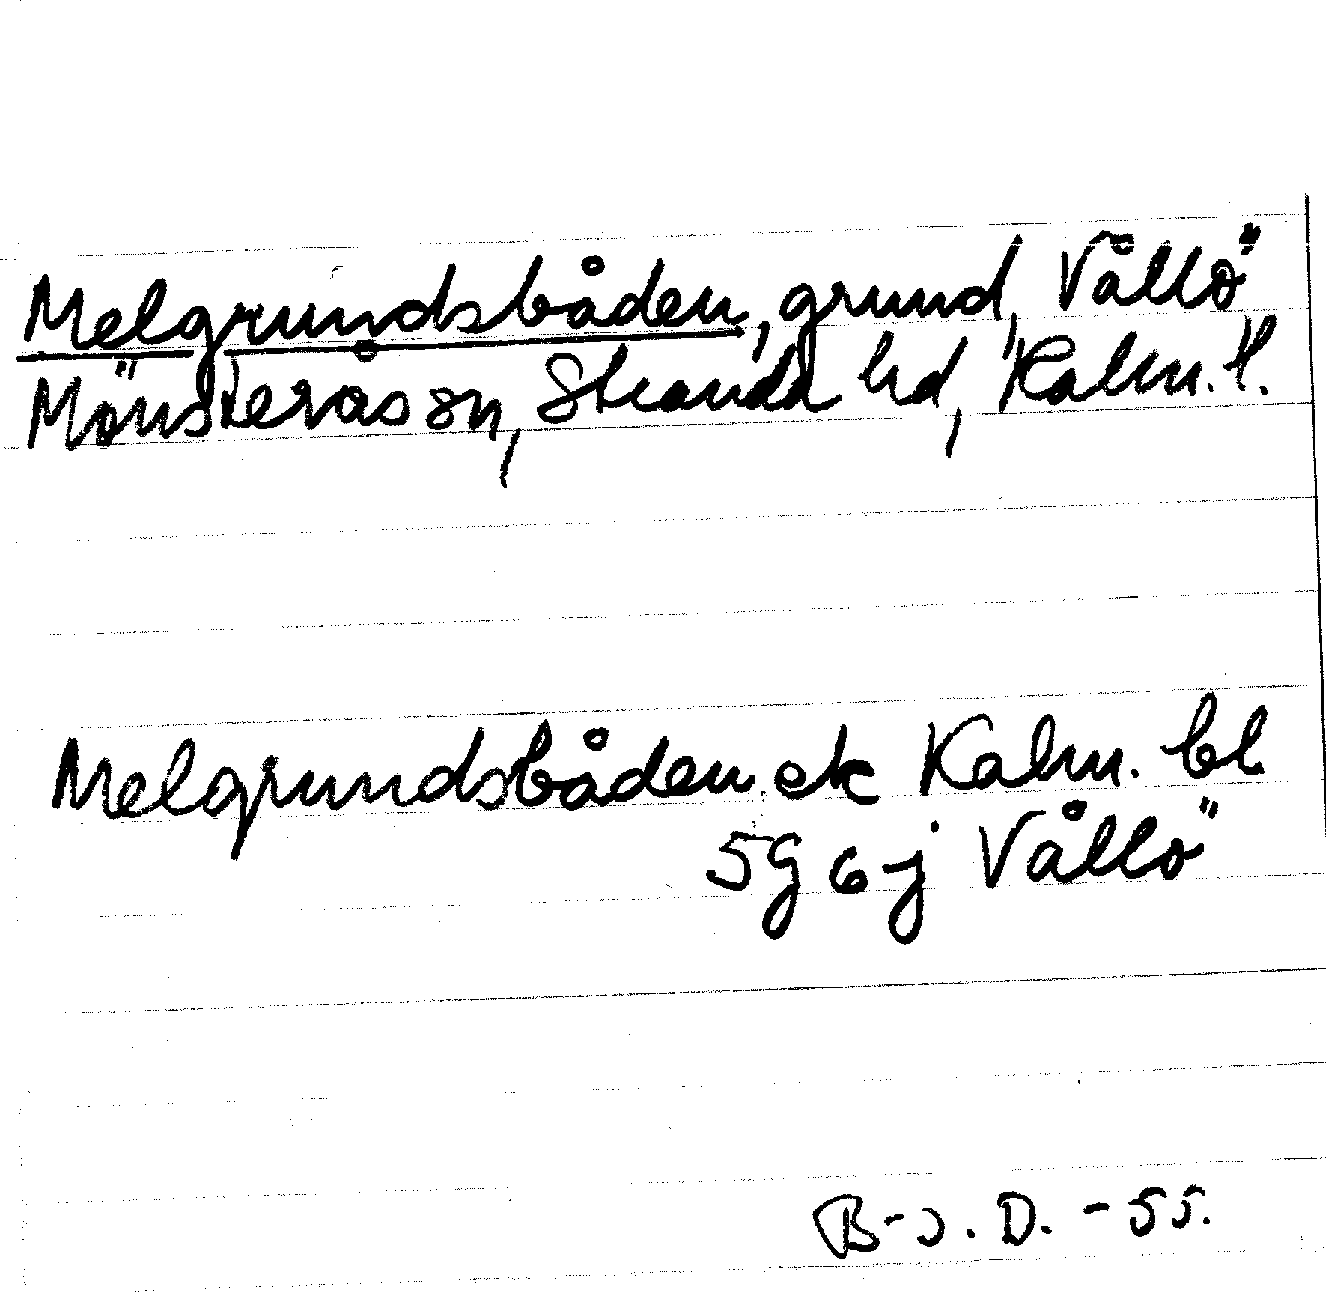 Melgrundsbåden, grund, Vållö
Mönsterås sn, Stranda hd, Kalm. l.
Melgrundsbåden ek Kalm. bl
5g 6 j Vållö
B-J. D. -55.